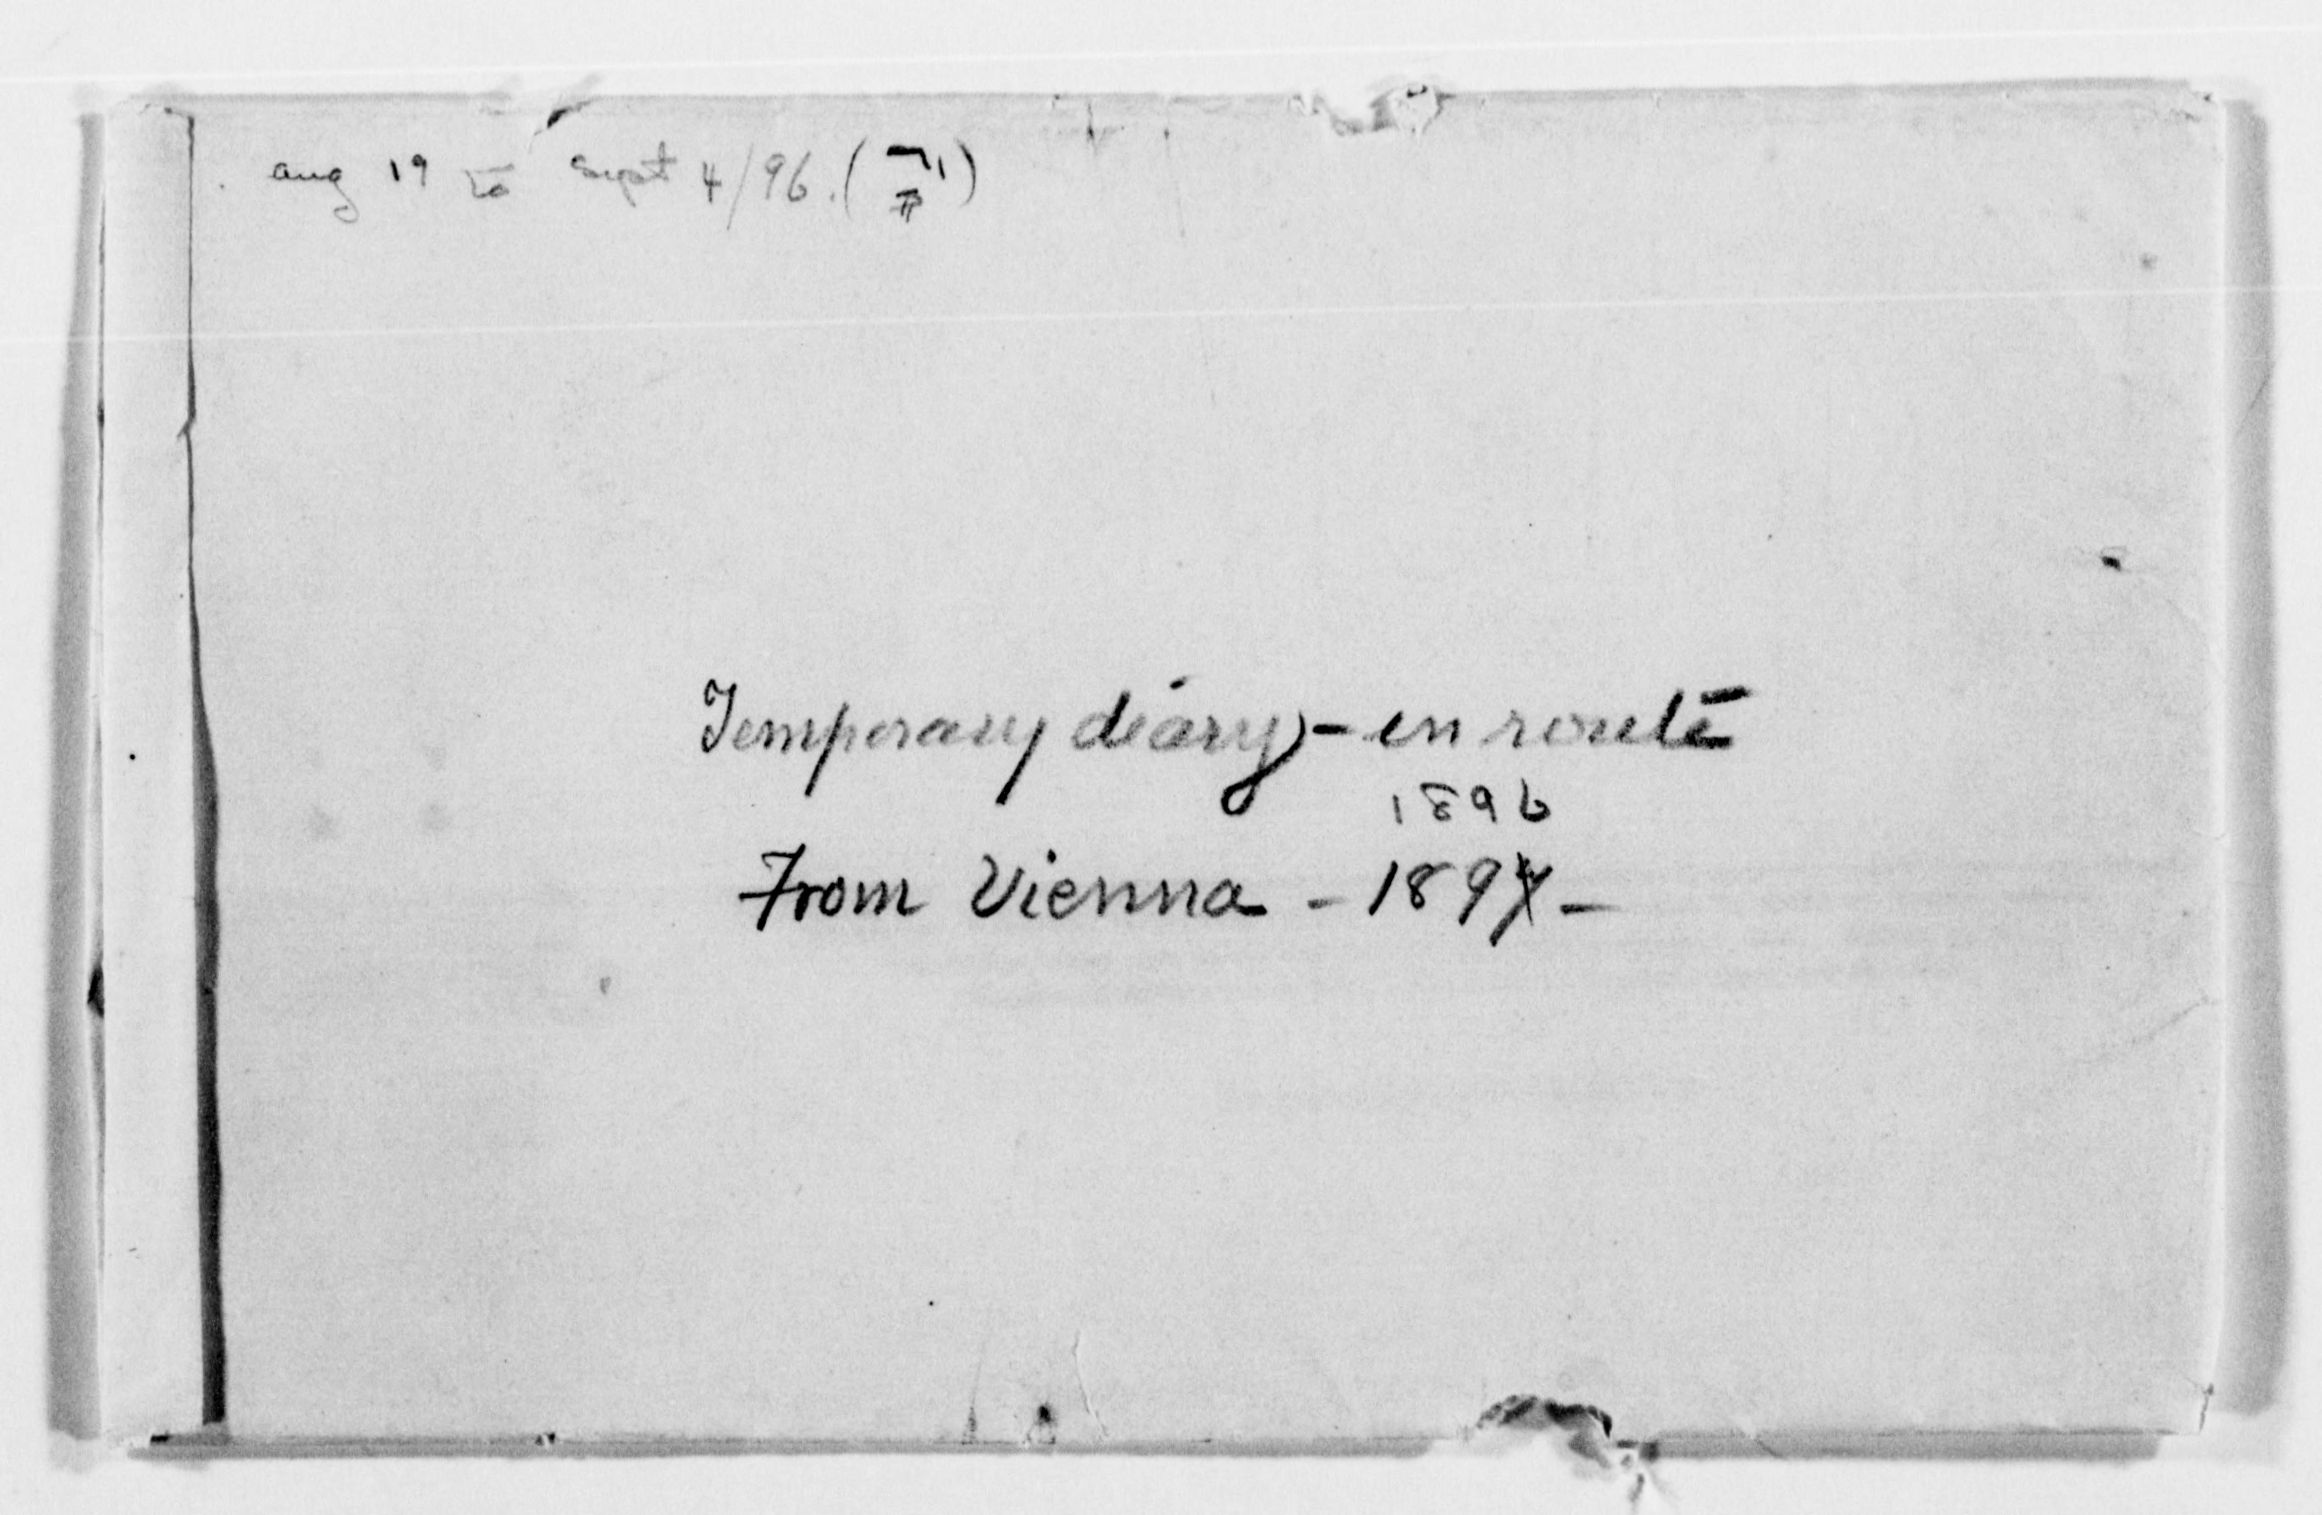 aug 19 to Sept 4/96.
Temporary diary - en route
1896
From Vienna - 1897 -